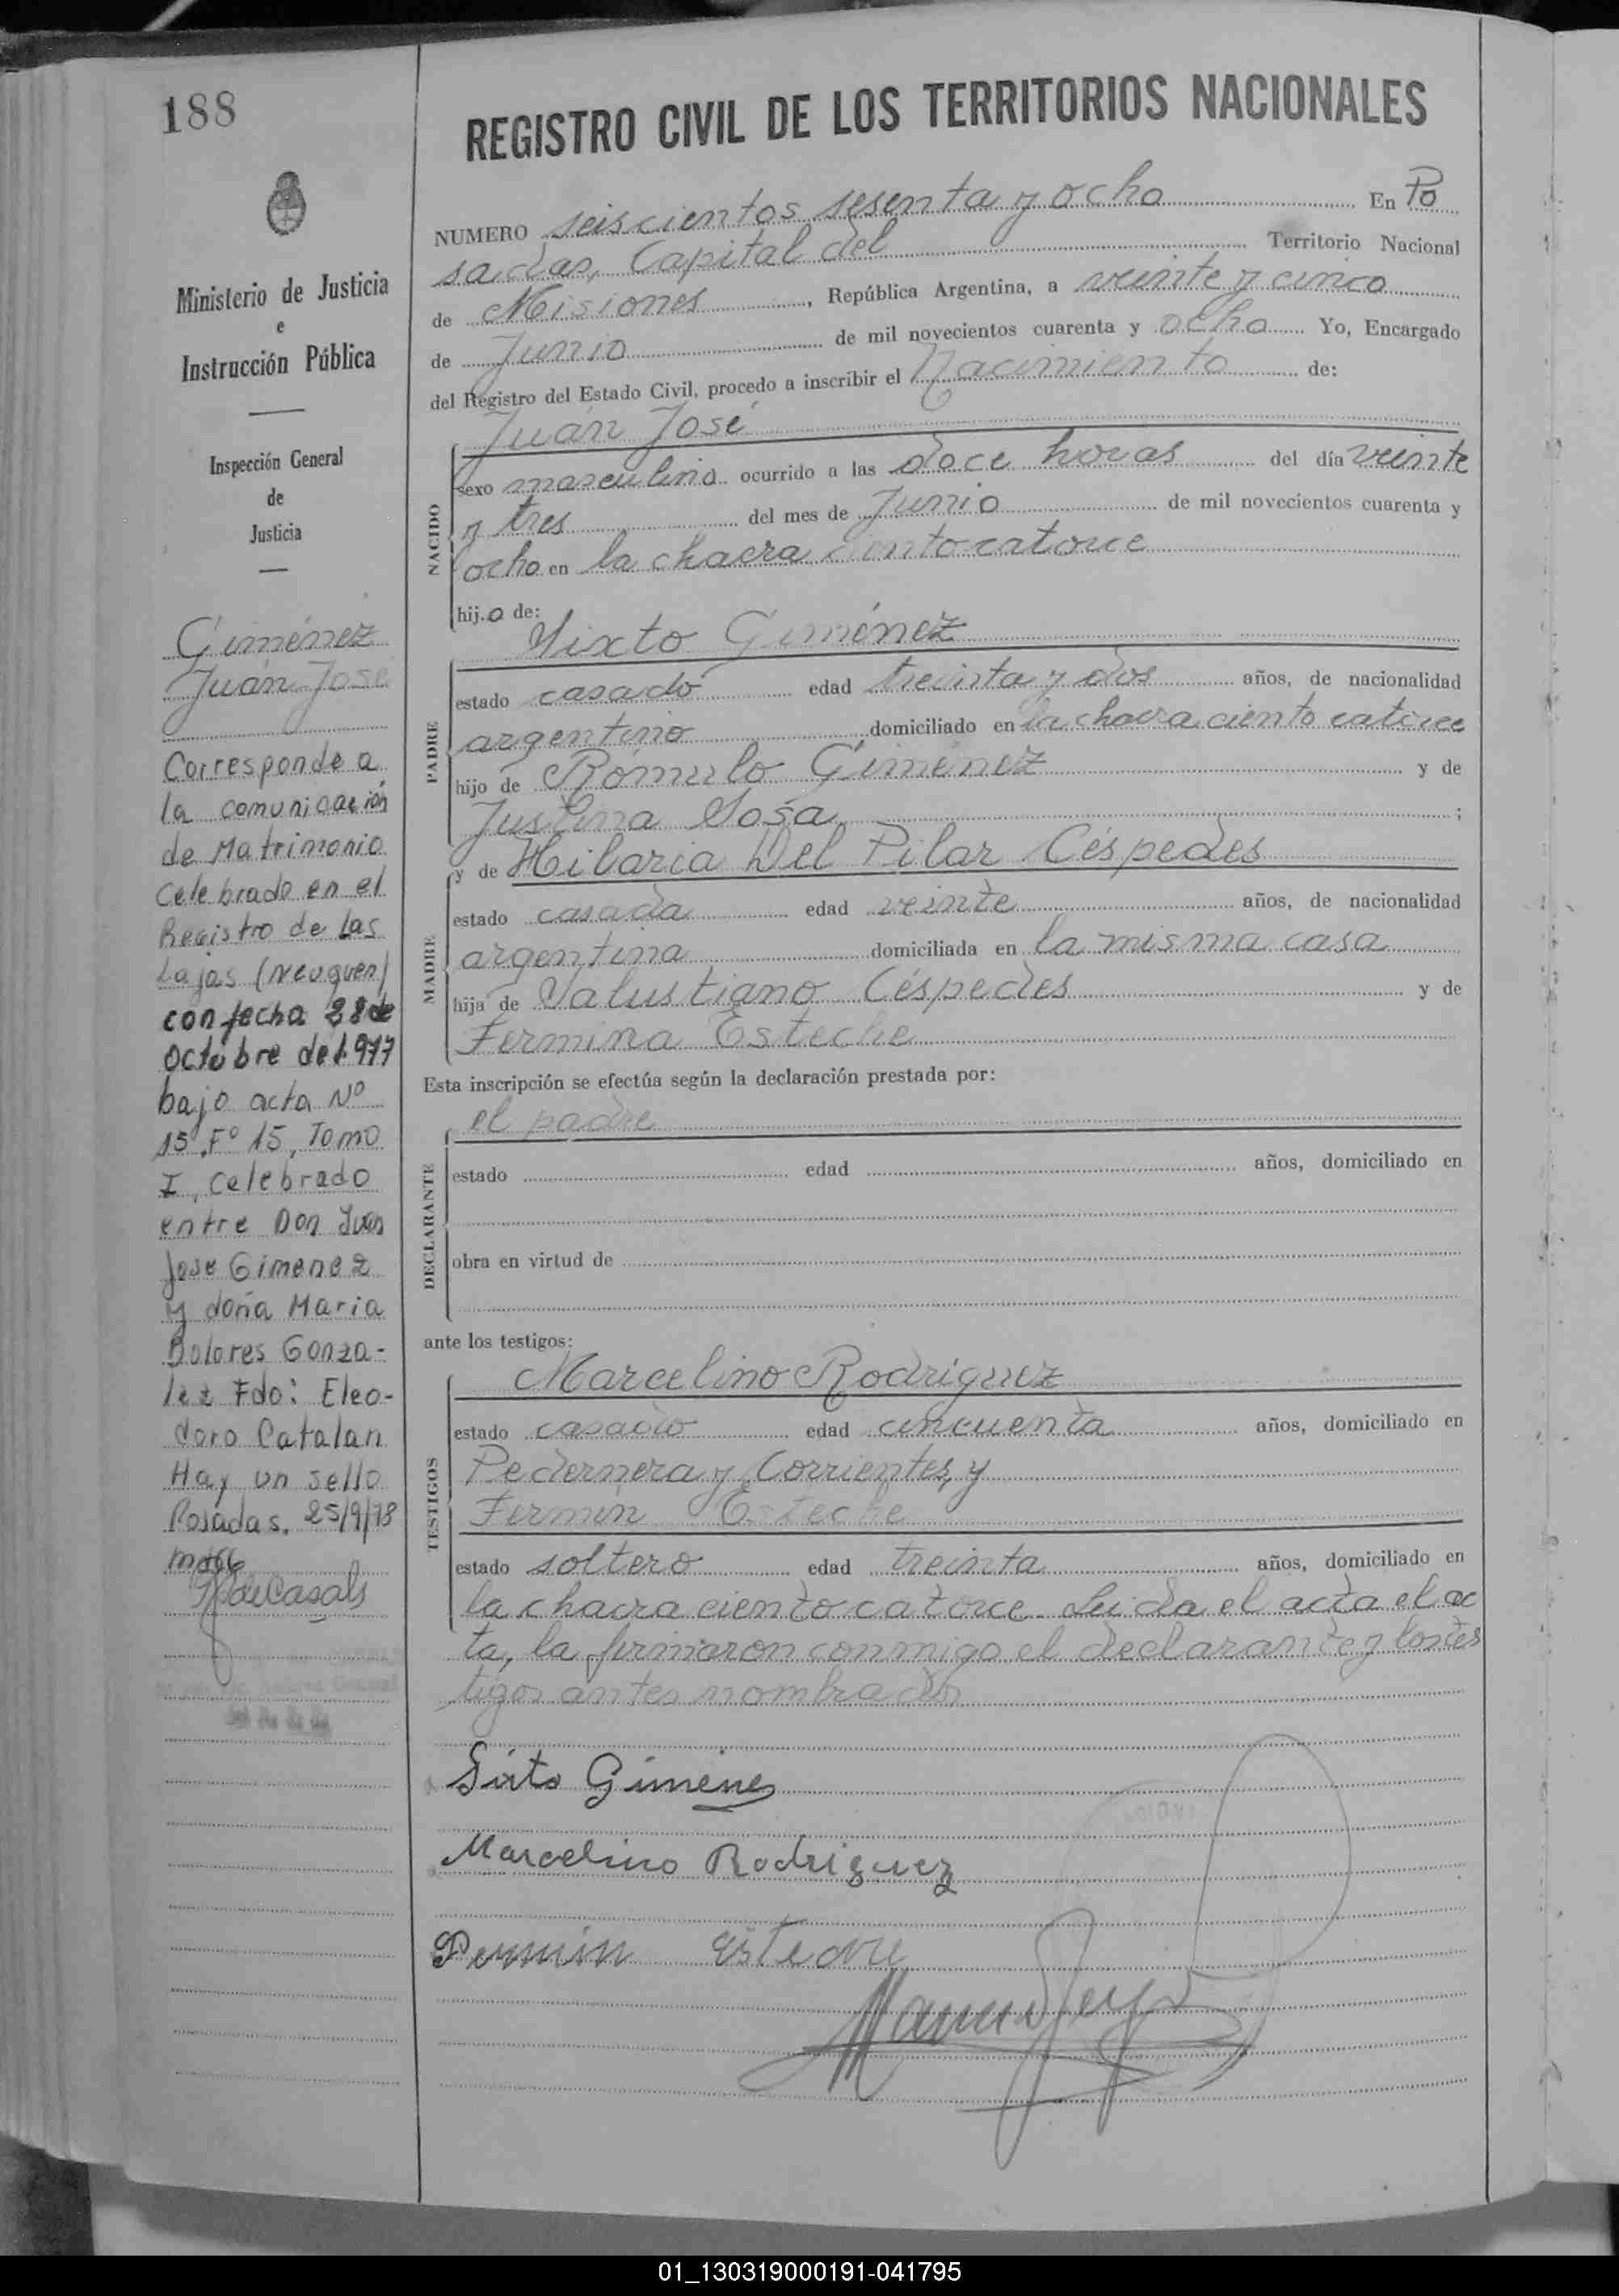 188
Ministerio de Justicia
e
Instrucción Pública
Inspección General
de
Justicia
Giménez
Juán José
Corresponde a
la comunicación
de Matrimonio
Celebrado en el
Registro de Las
Lajas (Neuquen)
con fecha 28 de
Octubre de 1.977
bajo acta Nº
15 Fº 15, Tomo
I, Celebrado
entre Don Juan
Jose Gimenez
y doña Maria
Dolores Gonza-
lez Fdo: Eleo-
doro Catalan
Hay un sello
Posadas, 25/9/78
de Casals
REGISTRO CIVIL DE LOS TERRITORIOS NACIONALES
NUMERO seiscientos sesenta y ocho En Po
sadas, Capital del Territorio Nacional
de Misiones, República Argentina, a veinte y cinco
de Junio de mil novecientos cuarenta y ocho Yo, Encargado
del Registro del Estado Civil, procedo a inscribir el Nacimiento de:
NACIDO
Juán José
sexo masculino ocurrido a las doce horas del día veinte
y tres del mes de Junio de mil novecientos cuarenta y
ocho en la chacra ciento catorce
hij.o de:
PADRE
Sixto Giménez
estado casado edad treinta y dos años, de nacionalidad
argentino domiciliado en la chacra ciento catorce
hijo de Rómulo Giménez y de
Justina Sosa ;
MADRE
y de Hilaria Del Pilar Céspedes
estado casada edad veinte años, de nacionalidad
argentina domiciliada en la misma casa
hija de Salustiano Céspedes y de
Fermina Esteche
Esta inscripción se efectúa según la declaración prestada por:
DECLARANTE
el padre
estado edad años, domiciliado en
obra en virtud de
ante los testigos:
TESTIGOS
Marcelino Rodriguez
estado casado edad cincuenta años, domiciliado en
Pedernera y Corrientes, y
Fermin Esteche
estado soltero edad treinta años, domiciliado en
la chacra ciento catorce. Leida el acta el ac
ta, la firmaron conmigo el declarante y los tes
tigos antes nombrados
Sixto Gimenes
Marcelino Rodriguez
Fermin Esteche
01_130319000191-041795